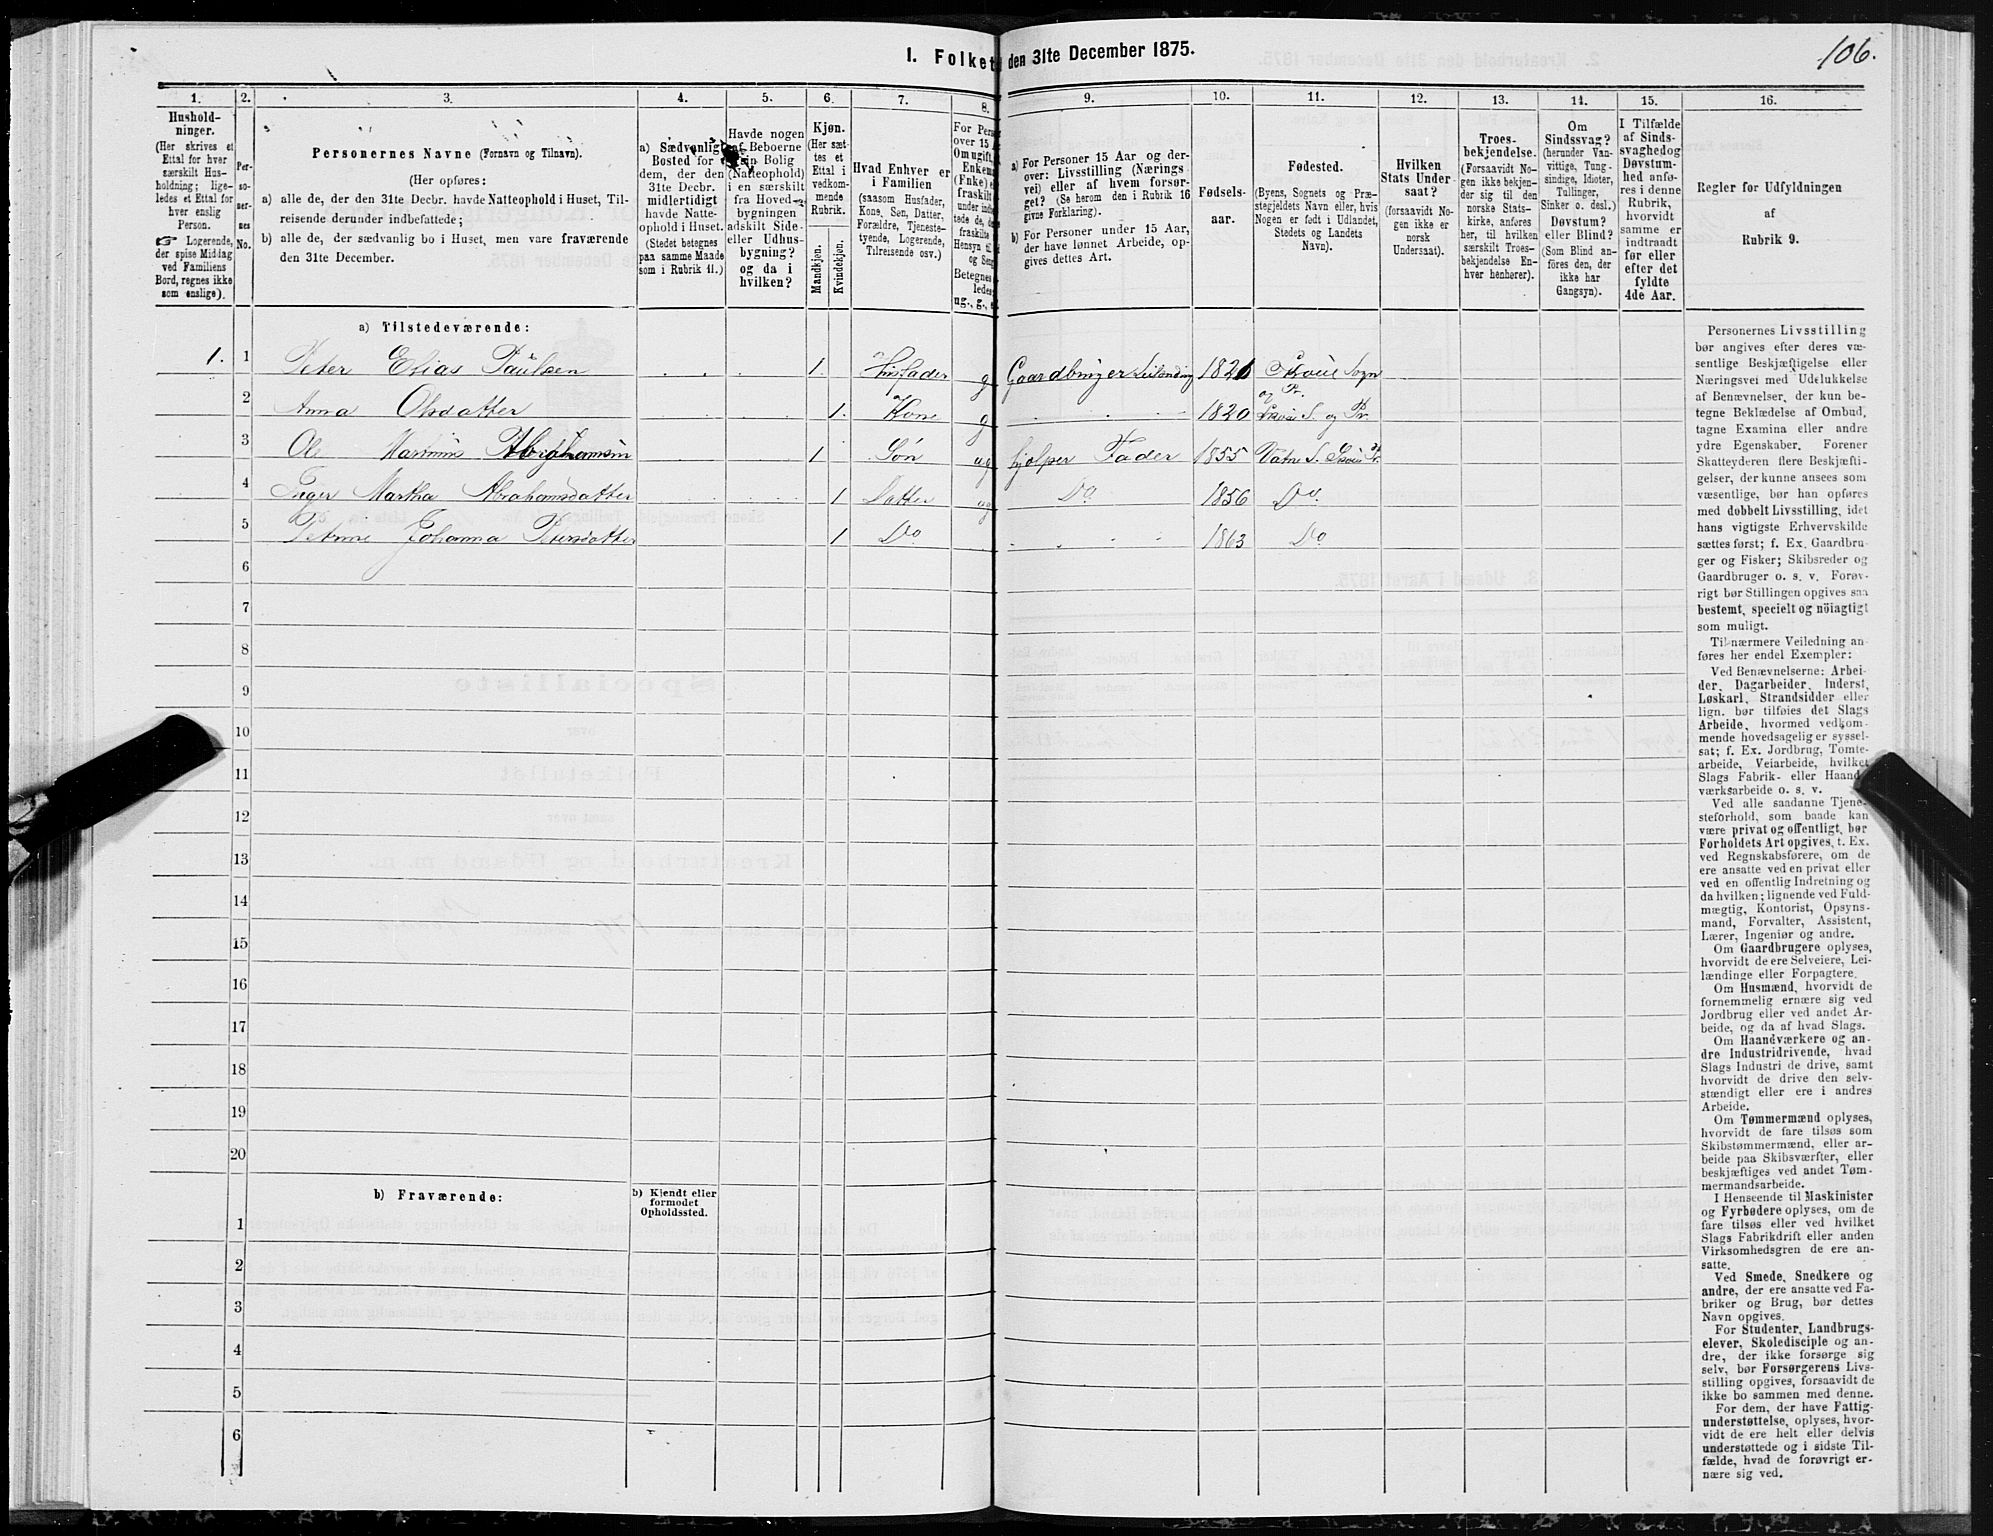 1. Folket den 31te December 1875.
106.
1. 2. 3. 4. 5. 6. 7. 8. 9. 10. 11. 12. 13. 14. 15. 16.
Hushold-
ninger.
(Her skrives et
Ettal for hver
særskilt Hus-
holdning; lige-
ledes et Ettal for
hver enslig
Person.
☞ Logerende,
der spise Middag
ved Familiens
Bord, regnes ikke
som enslige).
Per-
so-
ner-
nes
No.
Personernes Navne (Fornavn og Tilnavn).
(Her opføres:
a) alle de, der den 31te Decbr. havde Natteophold i Huset, Til-
reisende derunder indbefattede;
b) alle de, der sædvanlig bo i Huset, men vare fraværende
den 31te December.
a) Sædvanligt
Bosted for
dem, der den
31te Decbr.
midlertidigt
havde Natte-
ophold i Huset.
(Stedet betegnes
paa samme Maade
som i Rubrik 11.)
Havde nogen
af Beboerne
sin Bolig
(Natteophold)
i en særskilt
fra Hoved-
bygningen
adskilt Side-
eller Udhus-
bygning?
og da i
hvilken?
Kjøn.
(Her sæt-
tes et
Ettal i
vedkom-
mende
Rubrik.
Mandkjøn.
Kvindekjøn.
Hvad Enhver er
i Familien
(saasom Husfader,
Kone, Søn, Datter,
Forældre, Tjeneste-
tyende, Logerende,
Tilreisende osv.)
For Pers
over 15 A
Om ugift,
Enkem
(Enke) e
fraskilt
under indbe
tede de, de
fraskilte
Hensyn til
og Seng
Betegnes
ledes
ug., g., e
a) For Personer 15 Aar og der-
over: Livsstilling (Nærings-
vei) eller af hvem forsør-
get? (Se herom den i Rubrik 16
givne Forklaring).
b) For Personer under 15 Aar,
der have lønnet Arbeide, op-
gives dettes Art.
Fødsels-
aar.
Fødested.
(Byens, Sognets og Præ-
stegjeldets Navn eller, hvis
Nogen er født i Udlandet,
Stedets og Landets
Navn).
Hvilken
Stats Under-
saat?
(forsaavidt No-
gen ikke er
norsk
Undersaat).
Troes-
bekjendelse.
(Forsaavidt No-
gen ikke bekjen-
der sig til den
norske Stats-
kirke, anføres
her, til hvilken
særskilt Troes-
bekjendelse En-
hver henhører).
Om
Sindssvag?
(herunder Van-
vittige, Tung-
sindige, Idioter,
Tullinger,
Sinker o. desl.)
Døvstum?
eller Blind?
(Som Blind an-
føres den, der
ikke har
Gangsyn).
I Tilfælde
af Sinds-
svaghed og
Døvstum-
hed anfø-
res i denne
Rubrik,
hvorvidt
samme er
indtraadt
før eller
efter det
fyldte
4de Aar.
Regler for Udfyldningen
af
Rubrik 9.
a) Tilstedeværende:
1. 1 Peter Elias Paulsen 1 Husfader g Gaardbruger Leilænding 1821 Skoue Sogn
og Pr.
2 Anna Olsdatter 1. Kone g 1820 Skoue S. og Pr.
3 Ole Martinus Abrahamsen 1 Søn ug hjelper Fader 1855 Vatne S. Skoue Pr.
4 Inger Martha Abrahamsdatter 1 Datter ug Do 1856 Do.
5 Petrine Johanna Petersdatter 1 Do 1863 Do
6
7
8
9
10
11
12
13
14
15
16
17
18
19
20
b) Fraværende:
b) Kjendt eller
formodet
Opholdssted.
1
2
3
4
5
6
Personernes Livsstilling
bør angives efter deres væ-
sentlige Beskjæftigelse eller
Næringsvei med Udelukkelse
af Benævnelser, der kun be-
tegne Beklædelse af Ombud,
tagne Examina eller andre
ydre Egenskaber. Forener
Skatteyderen flere Beskjæfti-
gelser, der kunne ansees som
væsentlige, bør han opføres
med dobbelt Livsstilling, idet
hans vigtigste Erhvervskilde
sættes først; f. Ex. Gaardbru-
ger og Fisker; Skibsreder og
Gaardbruger o. s. v. Forøv-
rigt bør Stillingen opgives saa
bestemt, specielt og nöiagtigt
som muligt.
Til nærmere Veiledning an-
føres her endel Exempler:
Ved Benævnelserne: Arbei-
der, Dagarbeider, Inderst,
Løskarl, Strandsidder eller
lign. bør tilføies det Slags
Arbeide, hvormed vedkom-
mende hovedsagelig er syssel-
sat; f. Ex. Jordbrug, Tomte-
arbeide, Veiarbeide, hvilket
Slags Fabrik- eller Haand-
værksarbeide o. s. v.
Ved alle saadanne Tjene-
steforhold, som baade kan
være privat og offentligt, bør
Forholdets Art opgives, t. Ex.
ved Regnskabsførere, om de
ere ansatte ved en privat eller
ved en offentlig Indretning og
da hvilken; lignende ved Fuld-
mægtig, Kontorist, Opsyns-
mand, Forvalter, Assistent,
Lærer, Ingeniør og andre.
Om Gaardbrugere oplyses,
hvorvidt de ere Selveiere, Lei-
lændinge eller Forpagtere.
Om Husmænd, hvorvidt de
fornemmelig ernære sig ved
Jordbrug eller ved andet Ar-
beide, og da af hvad Slags.
Om Haandværkere og an-
dre Industridrivende, hvad
Slags Industri de drive, samt
hvorvidt de drive den selv-
stændigt eller ere i andres
Arbeide.
Om Tømmermænd oplyses,
hvorvidt de fare tilsøs som
Skibstømmermænd, eller ar-
beide paa Skibsværfter, eller
beskjæftiges ved andet Tøm-
mermandsarbeide.
I Henseende til Maskinister
og Fyrbødere oplyses, om de
fare tilsøs eller ved hvilket
Slags Fabrikdrift eller anden
Virksomhedsgren de ere an-
satte.
Ved Smede, Snedkere og
andre, der ere ansatte ved Fa-
briker og Brug, bør dettes
Navn opgives.
For Studenter, Landbrugs-
elever, Skoledisciple og an-
dre, der ikke forsørge sig
selv, bør Forsørgerens Livs-
stilling opgives, forsaavidt de
ikke bo sammen med denne.
For dem, der have Fattig-
understøttelse, oplyses, hvor-
vidt de ere helt eller delvis
understøttede og i sidste Til-
fælde, hvad de forøvrigt er-
nære sig ved.